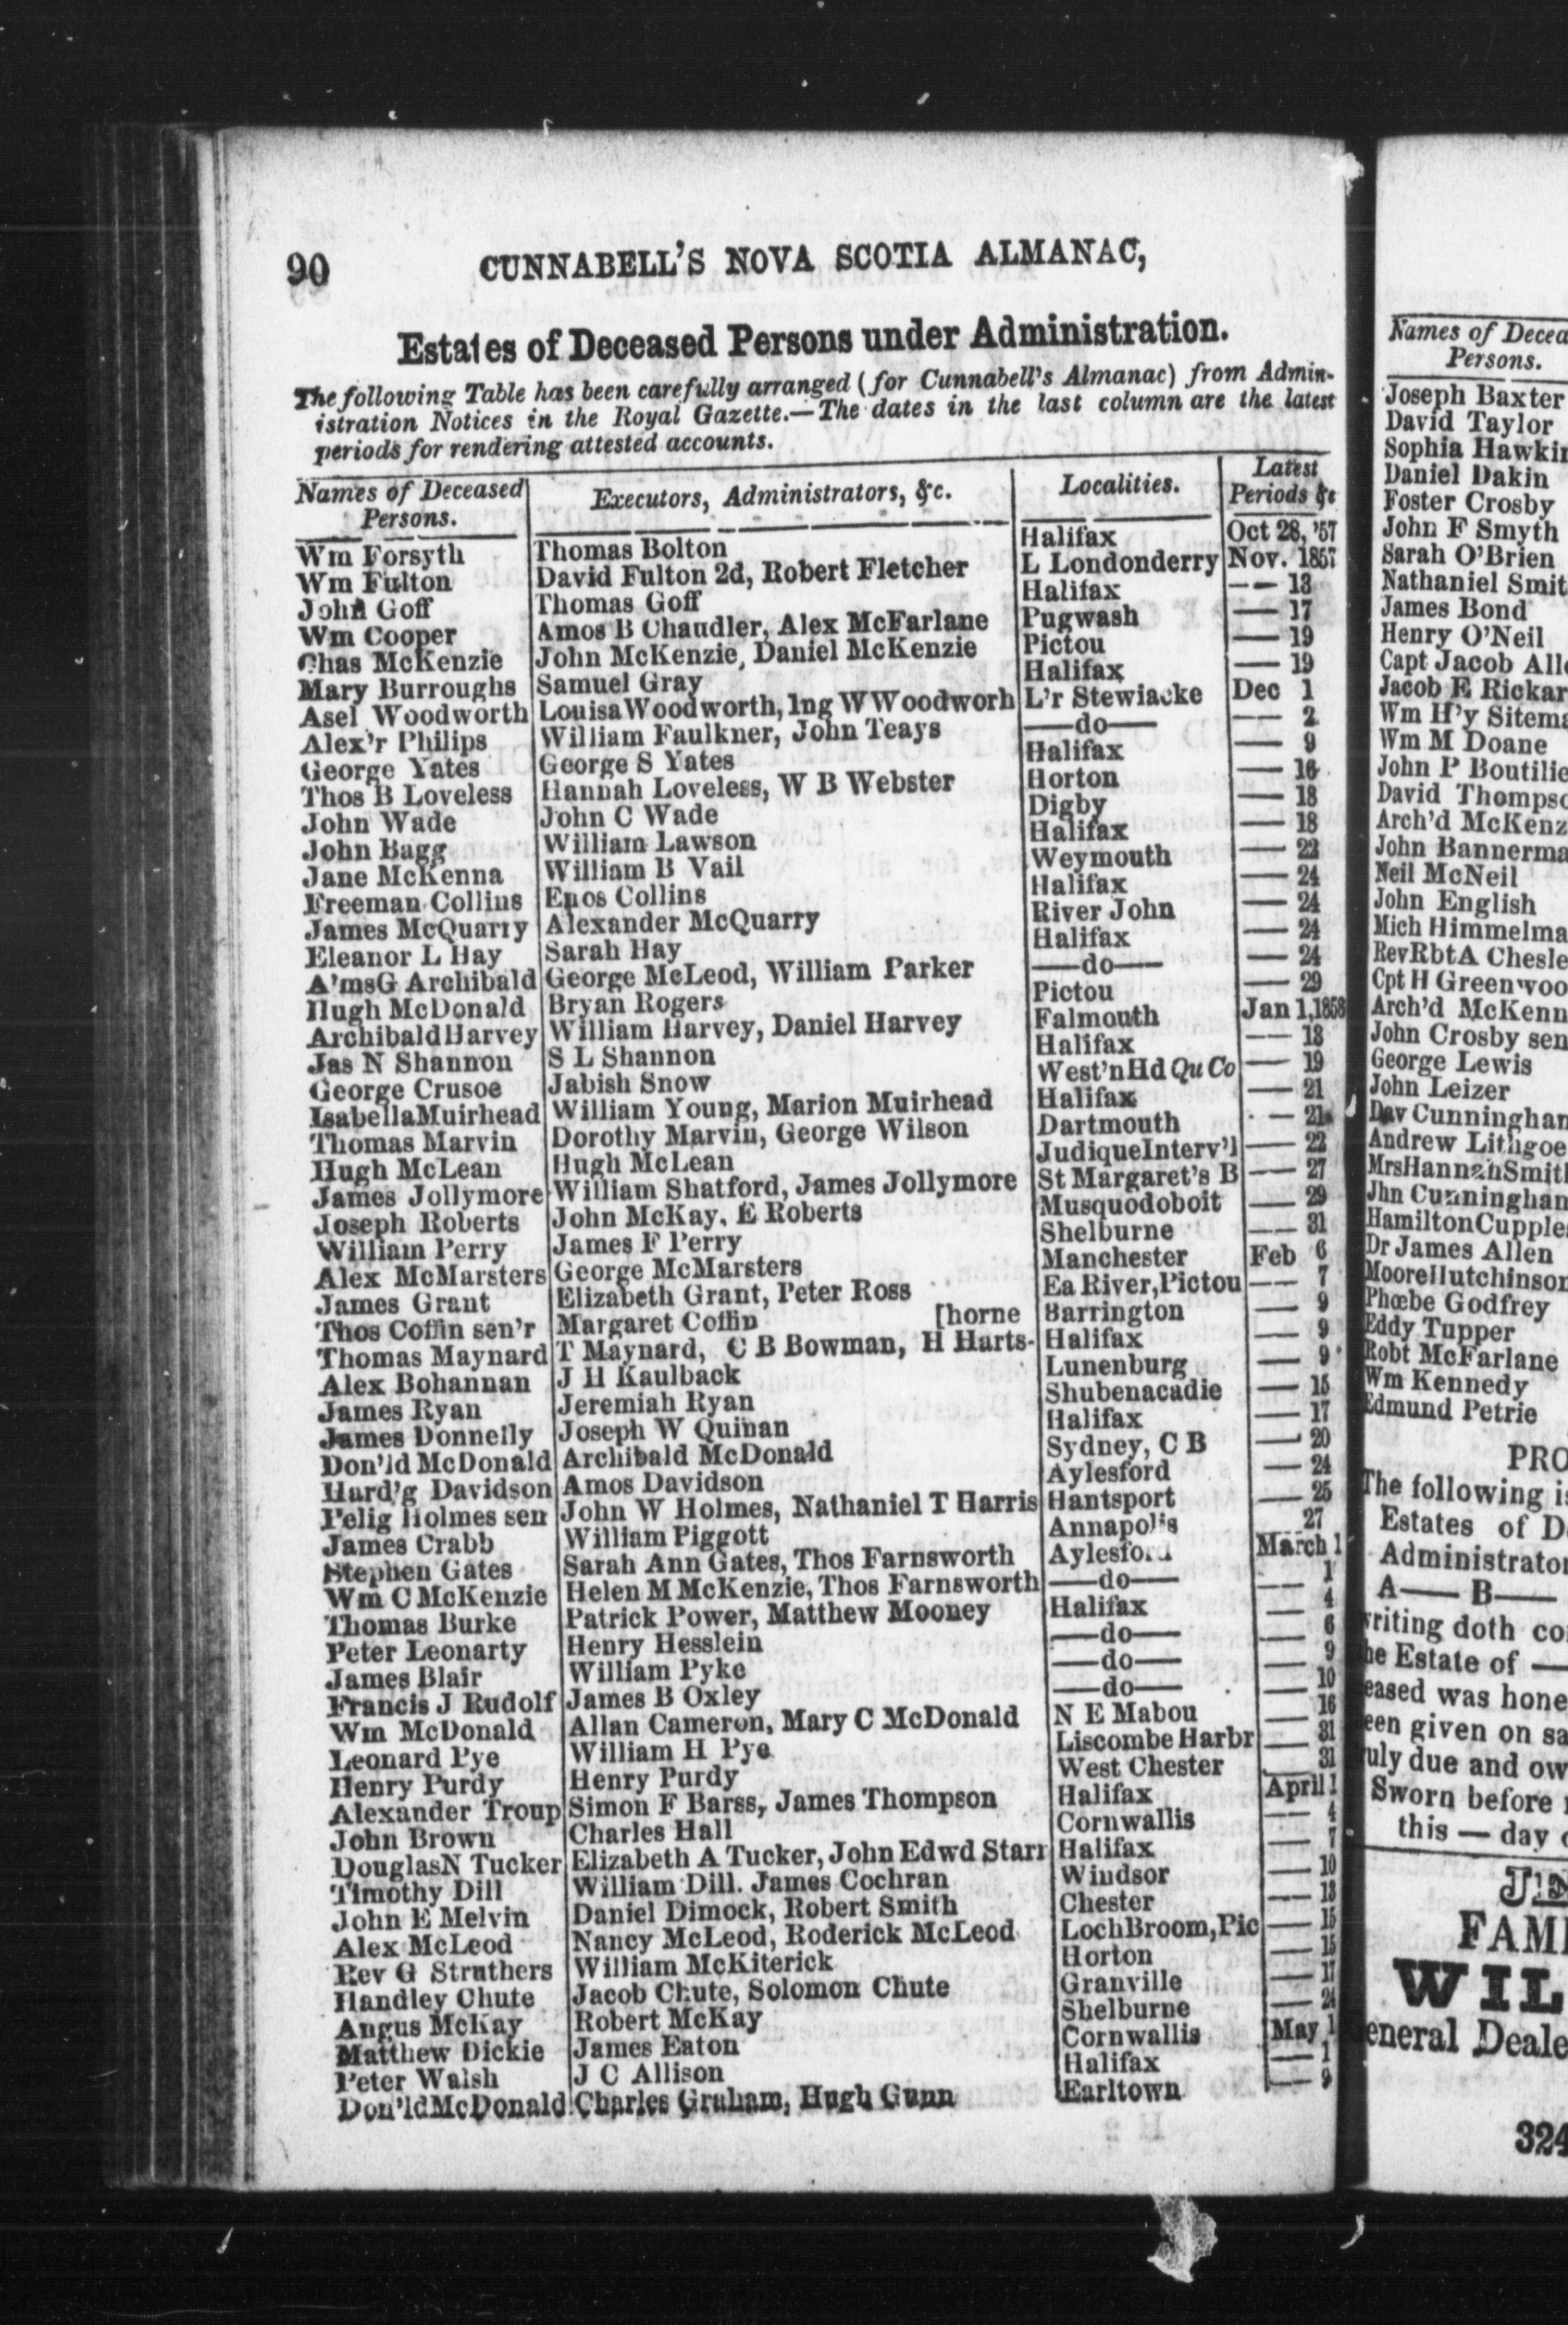 90 CUNNABELL'S NOVA SCOTIA ALMANAC,
Estates of Deceased Persons under Administration.
The following Table has been carefully arranged (for Cunnabell's Almanac) from Admin-
istration Notices in the Royal Gazette.—The dates in the last column are the latest
periods for rendering attested accounts.
Names of Deceased Persons. Executors, Administrators, &c. Localities. Latest Periods &c
Wm Forsyth Thomas Bolton Halifax Oct 28, '57
Wm Fulton David Fulton 2d, Robert Fletcher L Londonderry Nov. 1857
John Goff Thomas Goff Halifax —— 13
Wm Cooper Amos B Chandler, Alex McFarlane Pugwash —— 17
Chas McKenzie John McKenzie, Daniel McKenzie Pictou —— 19
Mary Burroughs Samuel Gray Halifax —— 19
Asel Woodworth Louisa Woodworth, Ing W Woodworh L'r Stewiacke Dec 1
Alex'r Philips William Faulkner, John Teays ——do—— —— 2
George Yates George S Yates Halifax —— 9
Thos B Loveless Hannah Loveless, W B Webster Horton —— 16
John Wade John C Wade Digby —— 18
John Bagg William Lawson Halifax —— 18
Jane McKenna William B Vail Weymouth —— 22
Freeman Collins Enos Collins Halifax —— 24
James McQuarry Alexander McQuarry River John —— 24
Eleanor L Hay Sarah Hay Halifax —— 24
A'msG Archibald George McLeod, William Parker ——do—— —— 24
Hugh McDonald Bryan Rogers Pictou —— 29
Archibald Harvey William Harvey, Daniel Harvey Falmouth Jan 1,1858
Jas N Shannon S L Shannon Halifax —— 13
George Crusoe Jabish Snow West'nHd Qu Co —— 19
Isabella Muirhead William Young, Marion Muirhead Halifax —— 21
Thomas Marvin Dorothy Marvin, George Wilson Dartmouth —— 21
Hugh McLean Hugh McLean Judique Interv'l —— 22
James Jollymore William Shatford, James Jollymore St Margaret's B —— 27
Joseph Roberts John McKay, E Roberts Musquodoboit —— 29
William Perry James F Perry Shelburne —— 31
Alex McMarsters George McMarsters Manchester Feb 6
James Grant Elizabeth Grant, Peter Ross Ea River,Pictou —— 7
Thos Coffin sen'r Margaret Coffin [horne Barrington —— 9
Thomas Maynard T Maynard, C B Bowman, H Harts- Halifax —— 9
Alex Bohannan J H Kaulback Lunenburg —— 9
James Ryan Jeremiah Ryan Shubenacadie —— 15
James Donnelly Joseph W Quinan Halifax —— 17
Don'ld McDonald Archibald McDonald Sydney, C B —— 20
Hard'g Davidson Amos Davidson Aylesford —— 24
Pelig Holmes sen John W Holmes, Nathaniel T Harris Hantsport —— 25
James Crabb William Piggott Annapolis 27
Stephen Gates Sarah Ann Gates, Thos Farnsworth Aylesford March 1
Wm C McKenzie Helen M McKenzie, Thos Farnsworth ——do—— —— 1
Thomas Burke Patrick Power, Matthew Mooney Halifax —— 4
Peter Leonarty Henry Hesslein ——do—— —— 6
James Blair William Pyke ——do—— —— 9
Francis J Rudolf James B Oxley ——do—— —— 10
Wm McDonald Allan Cameron, Mary C McDonald N E Mabou —— 16
Leonard Pye William H Pye Liscombe Harbr —— 31
Henry Purdy Henry Purdy West Chester —— 31
Alexander Troup Simon F Barss, James Thompson Halifax April 1
John Brown Charles Hall Cornwallis —— 4
Douglas N Tucker Elizabeth A Tucker, John Edwd Starr Halifax —— 7
Timothy Dill William Dill. James Cochran Windsor —— 10
John E Melvin Daniel Dimock, Robert Smith Chester —— 13
Alex McLeod Nancy McLeod, Roderick McLeod Loch Broom,Pic —— 15
Rev G Struthers William McKiterick Horton —— 15
Handley Chute Jacob Chute, Solomon Chute Granville —— 17
Angus McKay Robert McKay Shelburne —— 24
Matthew Dickie James Eaton Cornwallis May 1
Peter Walsh J C Allison Halifax —— 1
Don'ld McDonald Charles Graham, Hugh Gunn Earltown —— 9
Names of Decea
Persons.
Joseph Baxter
David Taylor
Sophia Hawkin
Daniel Dakin
Foster Crosby
John F Smyth
Sarah O'Brien
Nathaniel Smit
James Bond
Henry O'Neil
Capt Jacob Alle
Jacob E Rickar
Wm H'y Sitema
Wm M Doane
John P Boutilie
David Thompso
Arch'd McKenz
John Bannerma
Neil McNeil
John English
Mich Himmelma
Rev Rbt A Chesle
Cpt H Greenwoo
Arch'd McKenn
John Crosby sen
George Lewis
John Leizer
Dav Cunningham
Andrew Lithgoe
Mrs Hannah Smith
Jhn Cunningham
Hamilton Cupple
Dr James Allen
Moore Hutchinson
Phœbe Godfrey
Eddy Tupper
Robt McFarlane
Wm Kennedy
Edmund Petrie
PRO
The following is
Estates of D
Administrator
A—— B——
writing doth co
he Estate of —
eased was hone
een given on sa
uly due and ow
Sworn before
this — day
FAMI
WIL
eneral Deale
324